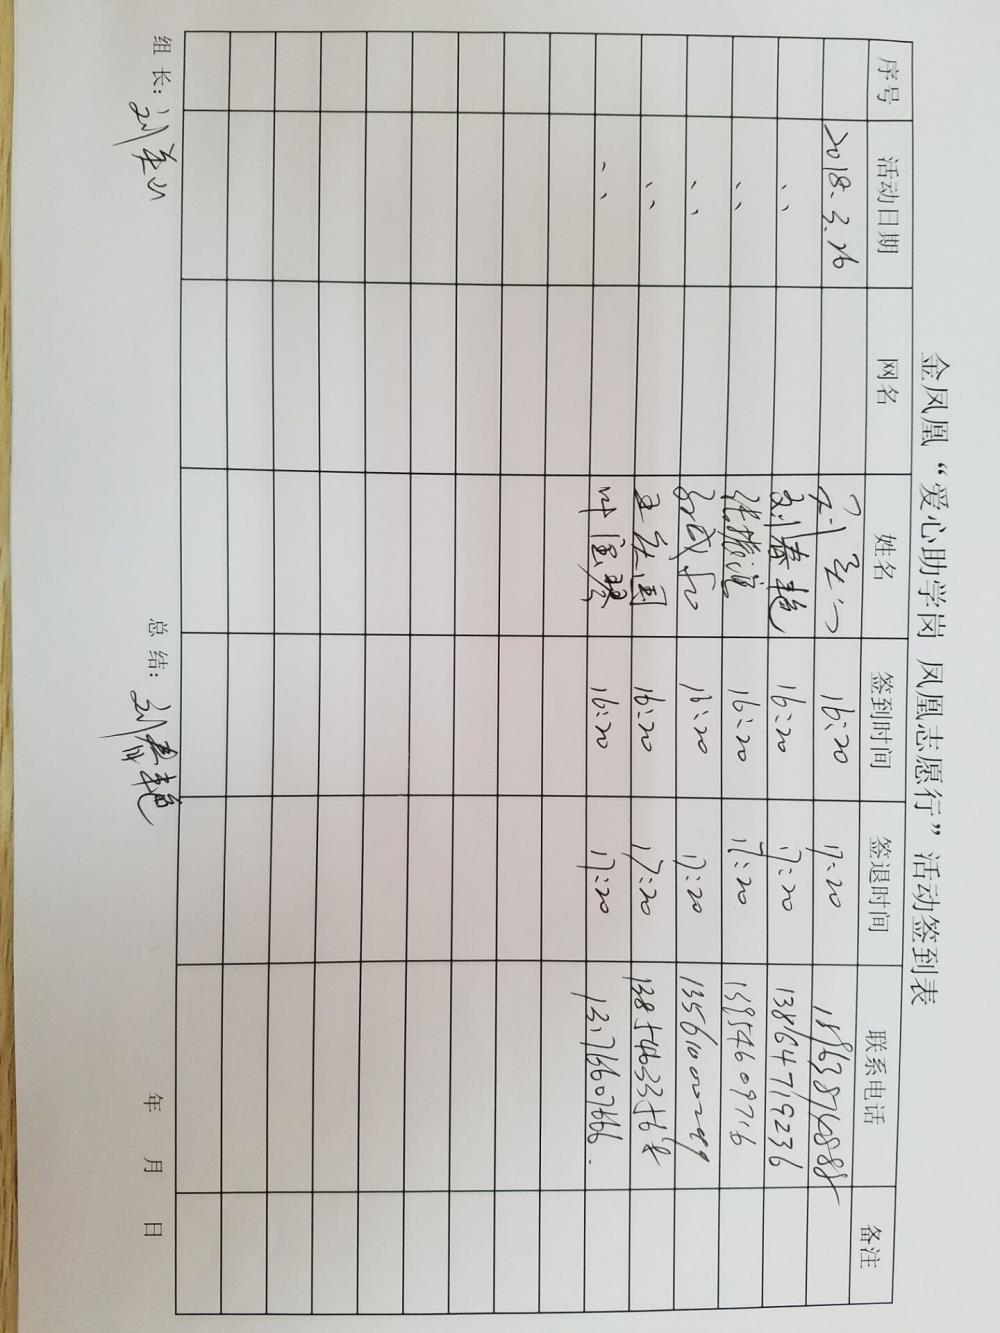 金凤凰“爱心助学岗 凤凰志愿行”活动签到表
序号 活动日期 网名 姓名 签到时间 签退时间 联系电话 备注
2018.3.26 刘 16:20 17:20 18638764888
〃 刘春艳 16:20 17:20 13864719236
〃 张振 16:20 17:20 13954609716
〃 16:20 17:20 13561000299
〃 王 国 16:20 17:20 13854633568
〃 叶 16:20 17:20
组 长: 刘 总 结: 刘春艳 年 月 日